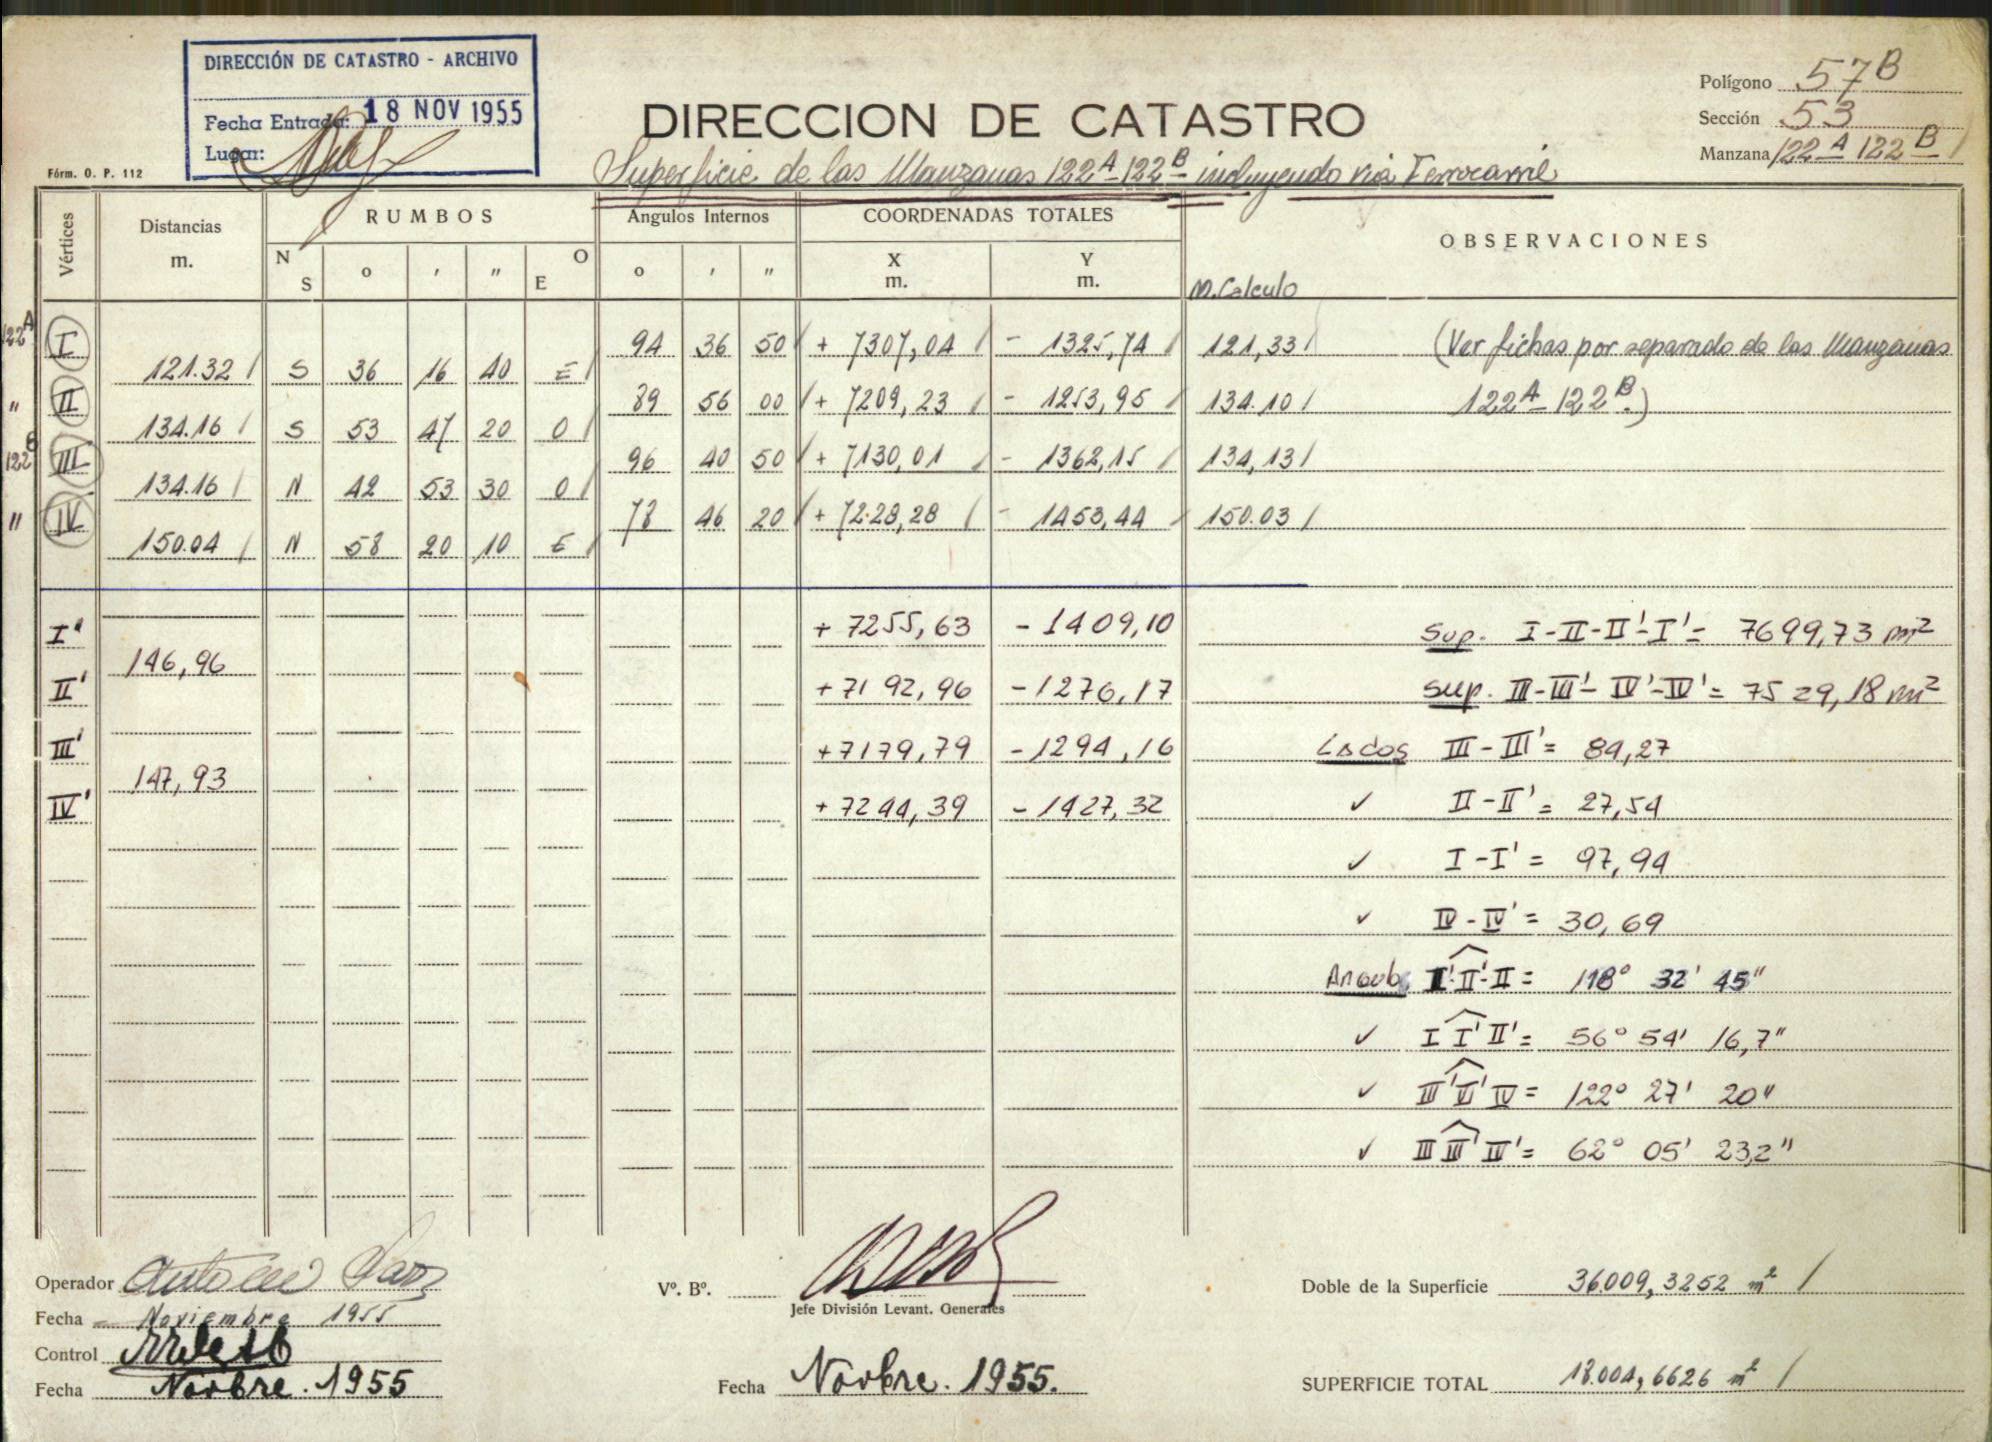 DIRECCIÓN DE CATASTRO - ARCHIVO
Fecha Entrada: 18 NOV 1955
Lugar:
Fórm. O. P. 112
DIRECCION DE CATASTRO
Superficie de las Manzanas 122A 122B incluyendo via Ferrocarril
Polígono 57B
Sección 53
Manzana 122A 122B
Vértices Distancias m. RUMBOS N S o ' " O E Angulos Internos o ' " COORDENADAS TOTALES X m. Y m. OBSERVACIONES
M. Calculo
122A I 94 36 50 + 7307,04 - 1325,74 121,33 (Ver fichas por separado de las Manzanas
121.32 S 36 16 40 E
" II 89 56 00 + 7209,23 - 1253,95 134.10 122A 122B.)
134.16 S 53 47 20 O
122B III 96 40 50 + 7130,01 - 1362,15 134,13
134.16 N 42 53 30 O
" IV 78 46 20 + 7228,28 - 1453,44 150.03
150.04 N 58 20 10 E
I' + 7255,63 - 1409,10 Sup. I-II-II'-I' = 7699,73 m²
146,96
II' + 7192,96 - 1276,17 Sup. III-III'-IV'-IV' = 7529,18 m²
III' + 7179,79 - 1294,16 Lados III-III' = 84,27
147,93
IV' + 7244,39 - 1427,32 ✓ II-II' = 27,54
✓ I-I' = 97,94
✓ IV-IV' = 30,69
Angulos I'-II'-II = 118° 32' 45"
✓ I I' II' = 56° 54' 16,7"
✓ III' IV' IV = 122° 27' 20"
✓ III III' IV' = 62° 05' 23,2"
Operador
Fecha Noviembre 1955
Control
Fecha Novbre. 1955
Vº. Bº.
Jefe División Levant. Generales
Fecha Novbre. 1955.
Doble de la Superficie 36.009,3252 m²
SUPERFICIE TOTAL 18.004,6626 m²